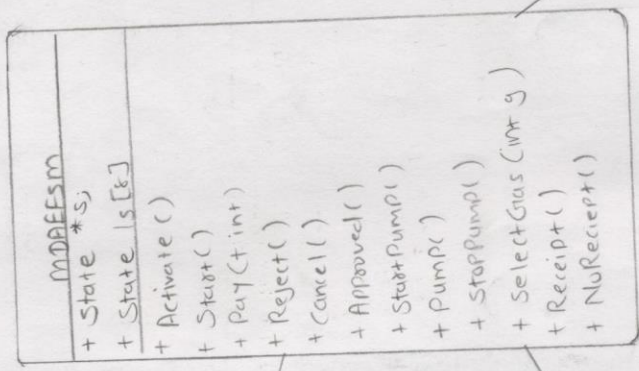 MDAEFSM
+ State *s;
+ State ls[8]
+ Activate ()
+ Start()
+ Pay(t int)
+ Reject()
+ Cancel()
+ Approved()
+ StartPump()
+ Pump()
+ StopPump()
+ SelectGas (int g)
+ Receipt()
+ NoReciept()